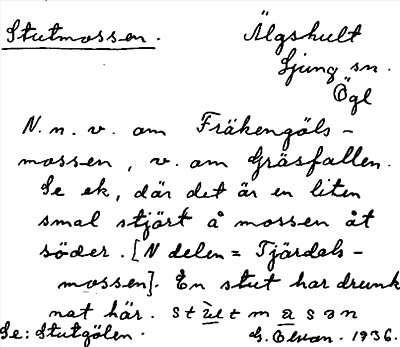 Stutmossen.
Älgshult
Ljung sn.
Ögl
N.n.v. om Fräkengöls-
mossen, v. om Gräsfallen.
Se ek, där det är en liten
smal stjärt å mossen åt
söder. [N delen = Tjärdals-
mossen]. En stut har drunk
nat här. stùtmasan
Se: Stutgölen.
1936.